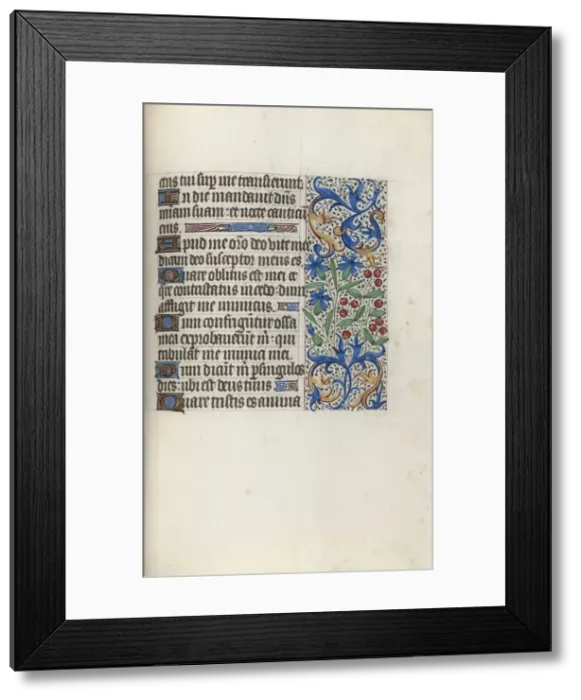 ctus tui sup me transierunt
In die mandauit dns
miam suam : et nocte canticu
eius.
Apud me oro deo vite mee
dicam deo susceptor meus es
Quare oblitus est mei et
qre contristatus incedo : dum
affligit me inimicus.
Dum confrigutur ossa
mea exprobauerut m : qui
tribulat me inimici mei
Dum dicut m p singulos
dies : ubi est deus tuus
Quare tristis es anima